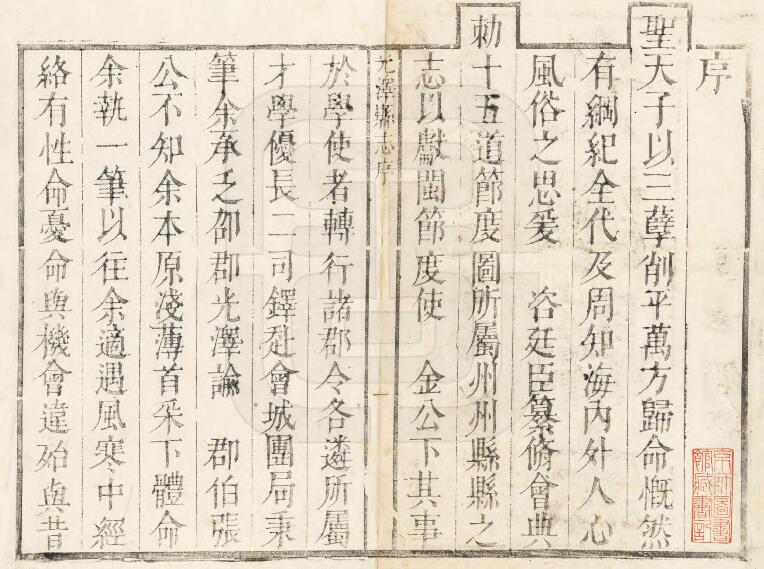 序
聖天子以三孽削平萬方歸命慨然
有綱紀全代及周知海內外人心
風俗之思爰 咨廷臣纂修會典
勅十五道節度圖所屬州州縣縣之
志以獻閩節度使 金公下其事
光澤縣志序
一
於學使者轉行諸郡令各遴所屬
才學優長二司鐸赴會城團局秉
筆余承乏邵郡光澤諭 郡伯張
公不知余本原淺薄首采下體命
余執一筆以往余適遇風寒中經
絡有性命憂命與機會違殆與昔
京師圖書館藏書記